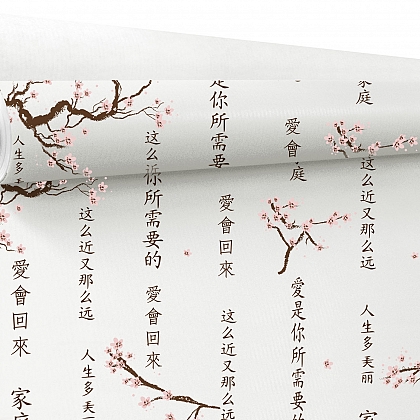 家庭
这么近又那么远
人生多美丽
愛會庭
愛是你所需要的
是你所需要
愛會回來
这么近又那么远
这么你所需要的
愛會回來
这么近又那么远
人生多美
人生多
愛會回來
家庭